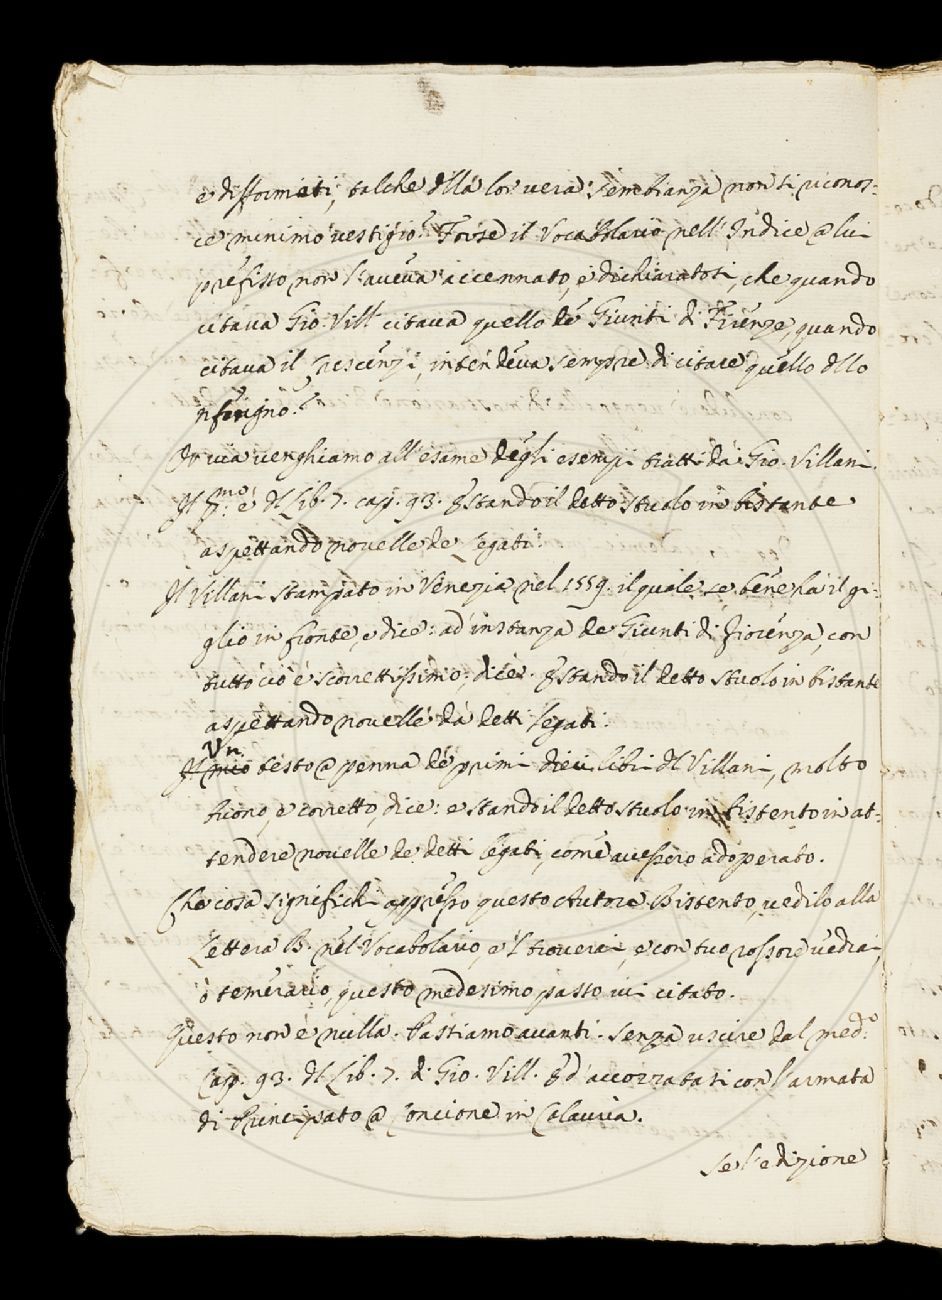 e difformati, talche dlla lor vera sembianza non si riconos-
ce minimo vestigio. Forse il Vocabolario nell' Indice @ lui
prefisso non l'aveva accennato, e dichiaratosi, che quando
citava Gio: Vill. citava quello de' Giunti di Firenze, quando
citava il Crescenzi, intendeva sempre di citare quello dllo
'nferigno?
Or via venghiamo all' esame degli esempi tratti da Gio. Villani.
Il p.mo è dl Lib. 7. cap. 93. Estando il detto stuolo in bistante
aspettando novelle de legati.
Il Villani stampato in Venezia nel 1559. il quale se bene ha il gi-
glio in fronte, e dice: ad instanza de Giunti di Fiorenza, con
tutto ciò è scorrettissimo; dice: Estando il detto stuolo in bistante
aspettando novelle da detti legati.
Un testo @ penna de primi dieci libri dl Villani, molto
buono, e corretto, dice: e stando il detto stuolo in bistento in at-
tendere novelle de detti legati, come avessero adoperato.
Che cosa significhi appresso questo Autore Bistento, vedilo alla
lettera B. nel Vocabolario, e l troverai, e con tuo rossore vedrai,
ò temerario, questo medesimo passo ivi citato.
Questo non è nulla. Passiamo avanti. Senza uscire dal med.o
Cap. 93. dl Lib. 7. di Gio. Vill. Ed' accozzatasi con l'armata
di Principato @ Concione in Calavria.
Se l'edizione